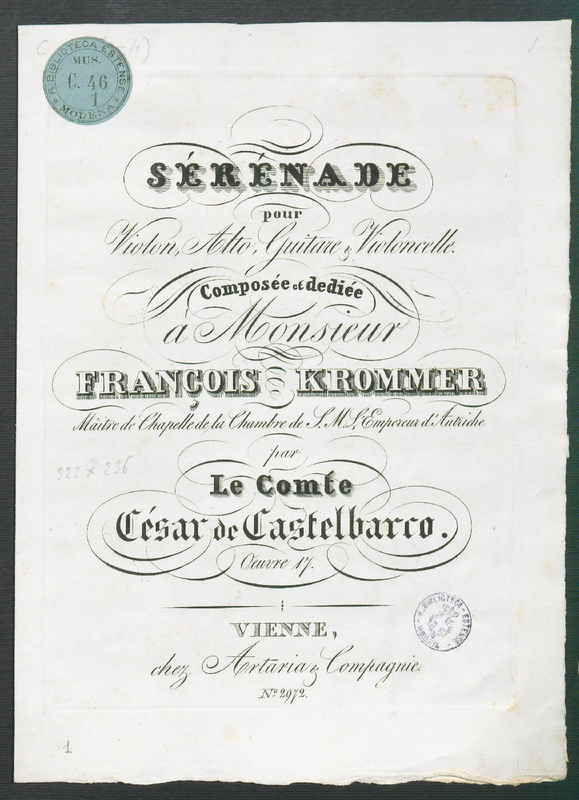 R. BIBLIOTECA ESTENSE
MUS.
C. 46
1
MODENA
1
SÉRÉNADE
pour
Violon, Alto, Guitare & Violoncelle.
Composée et dediée
à Monsieur
FRANÇOIS KROMMER
Mâitre de Chapelle de la Chambre de S. M. L'Empereur d'Autriche
par
322 236
Le Comte
César de Castelbarco.
Oeuvre 17.
R. BIBLIOTECA ESTENSE
VIENNE,
chez Artaria & Compagnie.
No. 2972.
1